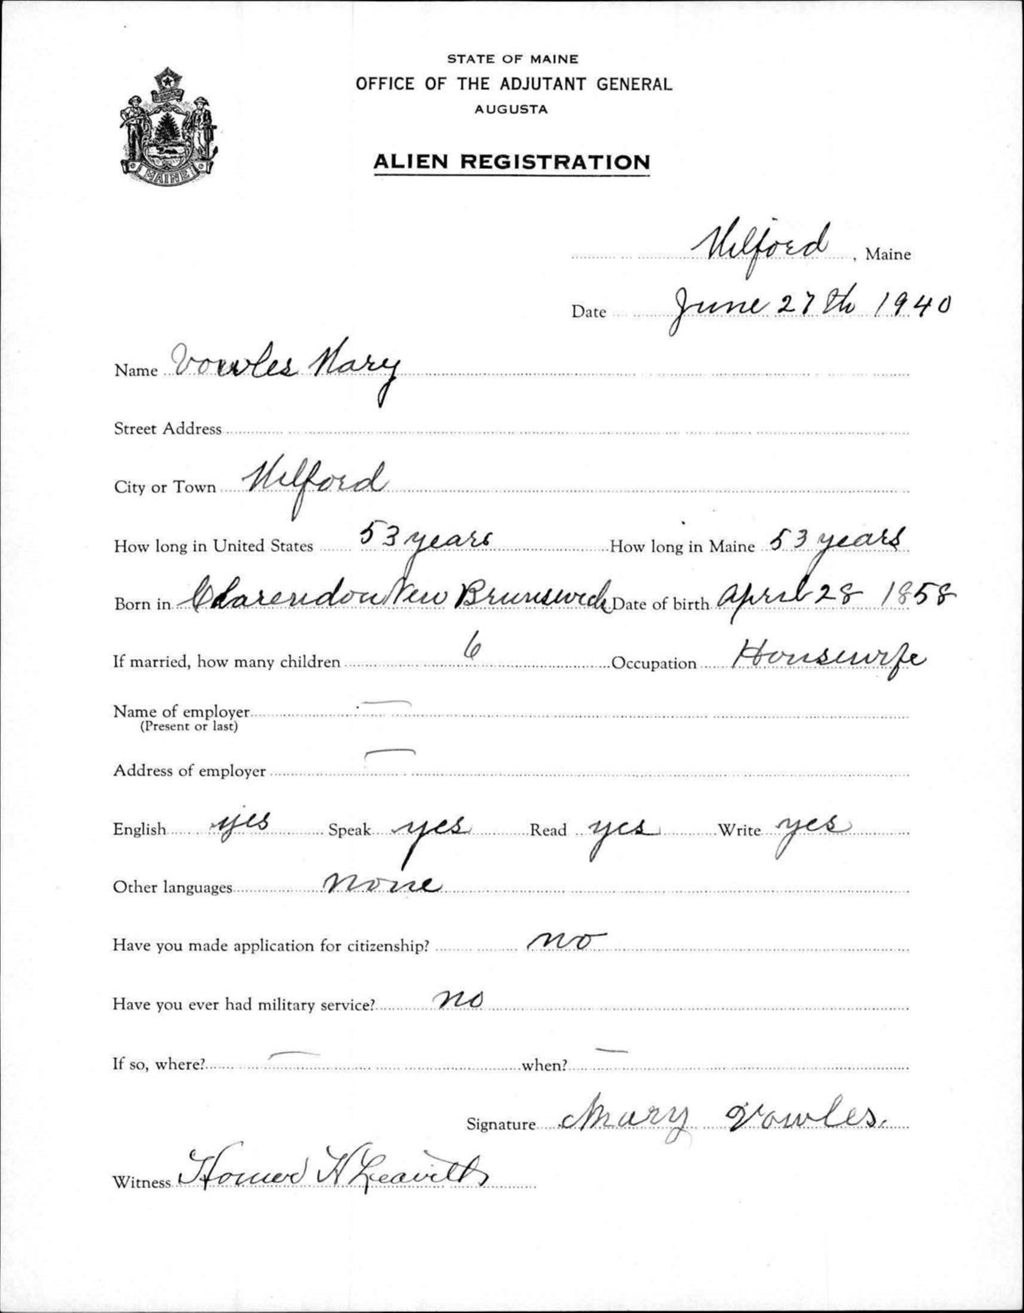 STATE OF MAINE
OFFICE OF THE ADJUTANT GENERAL
AUGUSTA
ALIEN REGISTRATION
MAINE
Milford, Maine
Date June 27th 1940
Name Vowles Mary
Street Address
City or Town Milford
How long in United States 53 years How long in Maine 53 years
Born in Clarendon New Brunswick Date of birth April 28 1858
If married, how many children 6 Occupation Housewife
Name of employer —
(Present or last)
Address of employer —
English yes Speak yes Read yes Write yes
Other languages none
Have you made application for citizenship? no
Have you ever had military service? no
If so, where? — when? —
Signature Mary Vowles.
Witness Homer H Leavitt